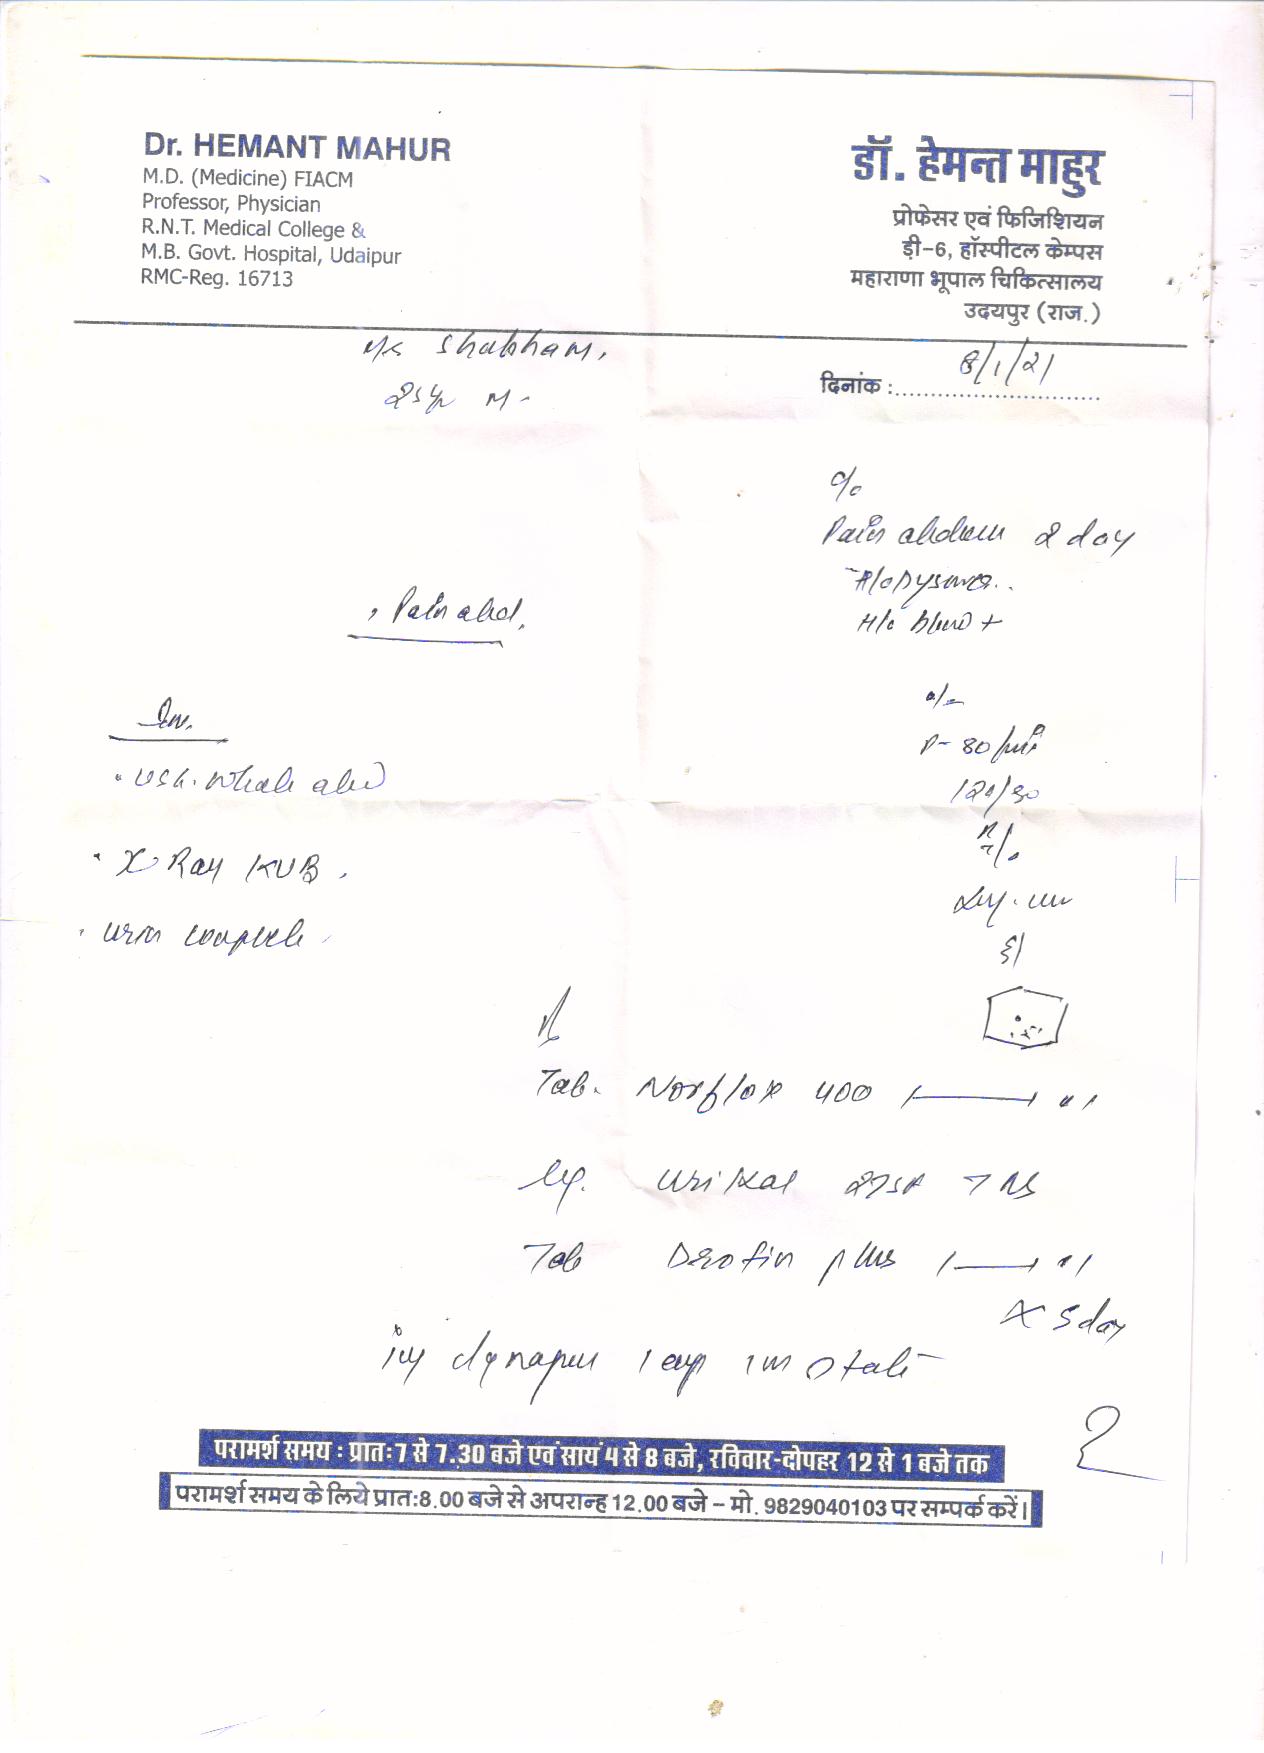 Dr. HEMANT MAHUR
M.D. (Medicine) FIACM
Professor, Physician
R.N.T. Medical College &
M.B. Govt. Hospital, Udaipur
RMC-Reg. 16713
डॉ. हेमन्त माहुर
प्रोफेसर एवं फिजिशियन
डी-6, हॉस्पीटल केम्पस
महाराणा भूपाल चिकित्सालय
उदयपुर (राज.)
दिनांक : 8/1/21
25 yr M
c/o
Pain abdomen 2 day
H/o
H/o
Pain abd.
Inv.
USG. Whole abd
X Ray KUB
Urin complete
o/-
P- 80/min
120/80
Tab. Norflox 400
Urikal
Tab Drofin plus
X 5 day
inj dynapar 1 amp im stat
2
परामर्श समय : प्रातः 7 से 7.30 बजे एवं सायं 4 से 8 बजे, रविवार-दोपहर 12 से 1 बजे तक
परामर्श समय के लिये प्रात:8.00 बजे से अपरान्ह 12.00 बजे – मो. 9829040103 पर सम्पर्क करें।